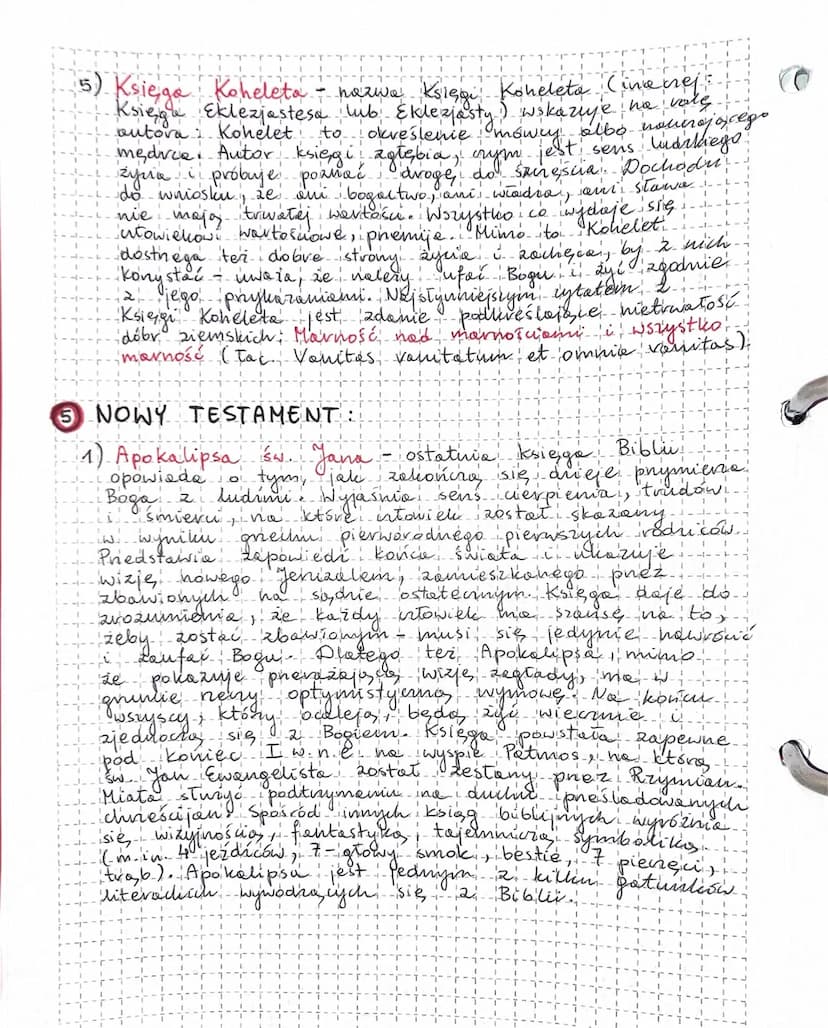 5) Księga Koheleta - nazwa Księgi Koheleta (inaczej:
Księga Eklezjastesa lub Eklezjasty) wskazuje na rolę
autora: Kohelet to określenie mówcy albo nauczającego
mędrca. Autor księgi zgłębia, czym jest sens ludzkiego
życia i próbuje poznać drogę do szczęścia. Dochodzi
do wniosku, że ani bogactwo, ani władza, ani sława
nie mają trwałej wartości. Wszystko co wydaje się
człowiekowi wartościowe, przemija. Mimo to Kohelet
dostrzega też dobre strony życia i zachęca, by z nich
korzystać - uważa, że należy ufać Bogu i żyć zgodnie
z jego przykazaniami. Najsłynniejszym cytatem z
Księgi Koheleta jest zdanie podkreślające nietrwałość
dóbr ziemskich: Marność nad marnościami i wszystko
marność (łac. Vanitas vanitatum et omnia vanitas).
5 NOWY TESTAMENT:
1) Apokalipsa św. Jana - ostatnia księga Biblii
opowiada o tym, jak zakończą się dzieje przymierza
Boga z ludźmi. Wyjaśnia sens cierpienia, trudów
i śmierci, na które człowiek został skazany
w wyniku grzechu pierworodnego pierwszych rodziców.
Przedstawia zapowiedź końca świata i ukazuje
wizję nowego Jeruzalem, zamieszkanego przez
zbawionych na sądzie ostatecznym. Księga daje do
zrozumienia, że każdy człowiek ma szansę na to,
żeby zostać zbawionym - musi się jedynie nawrócić
i zaufać Bogu. Dlatego też Apokalipsa, mimo
że pokazuje przerażającą wizję zagłady, ma w
gruncie rzeczy optymistyczną wymowę. Na końcu
wszyscy, którzy ocaleją, będą żyć wiecznie i
zjednoczą się z Bogiem. Księga powstała zapewne
pod koniec I w. n.e na wyspie Patmos, na którą
św. Jan Ewangelista został zesłany przez Rzymian.
Miała służyć podtrzymaniu na duchu prześladowanych
chrześcijan. Spośród innych ksiąg biblijnych wyróżnia
się wizyjnością, fantastyką, tajemniczą symboliką.
(m.in. 4 jeźdźców, 7-głowy smok, bestie, 7 pieczęci,
trąb). Apokalipsa jest jednym z kilku gatunków
literackich wywodzących się z Biblii.